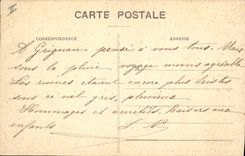 II
CARTE POSTALE
CORRESPONDANCE ADRESSE
A Grignan pensé à vous tous. Mais
sous la pluie, voyage moins agréable
Les ruines étaient encore plus tristes
sous ce ciel gris, pluvieux
Hommages et amitiés. Baisers aux
enfants